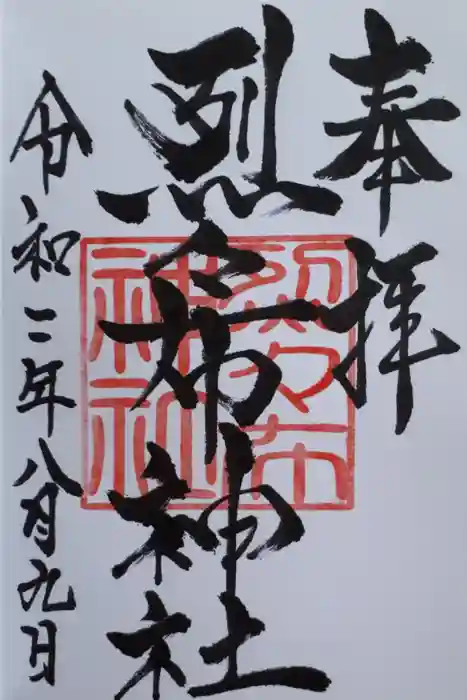 奉拝
烈々布神社
令和二年八月九日
烈々布
神社